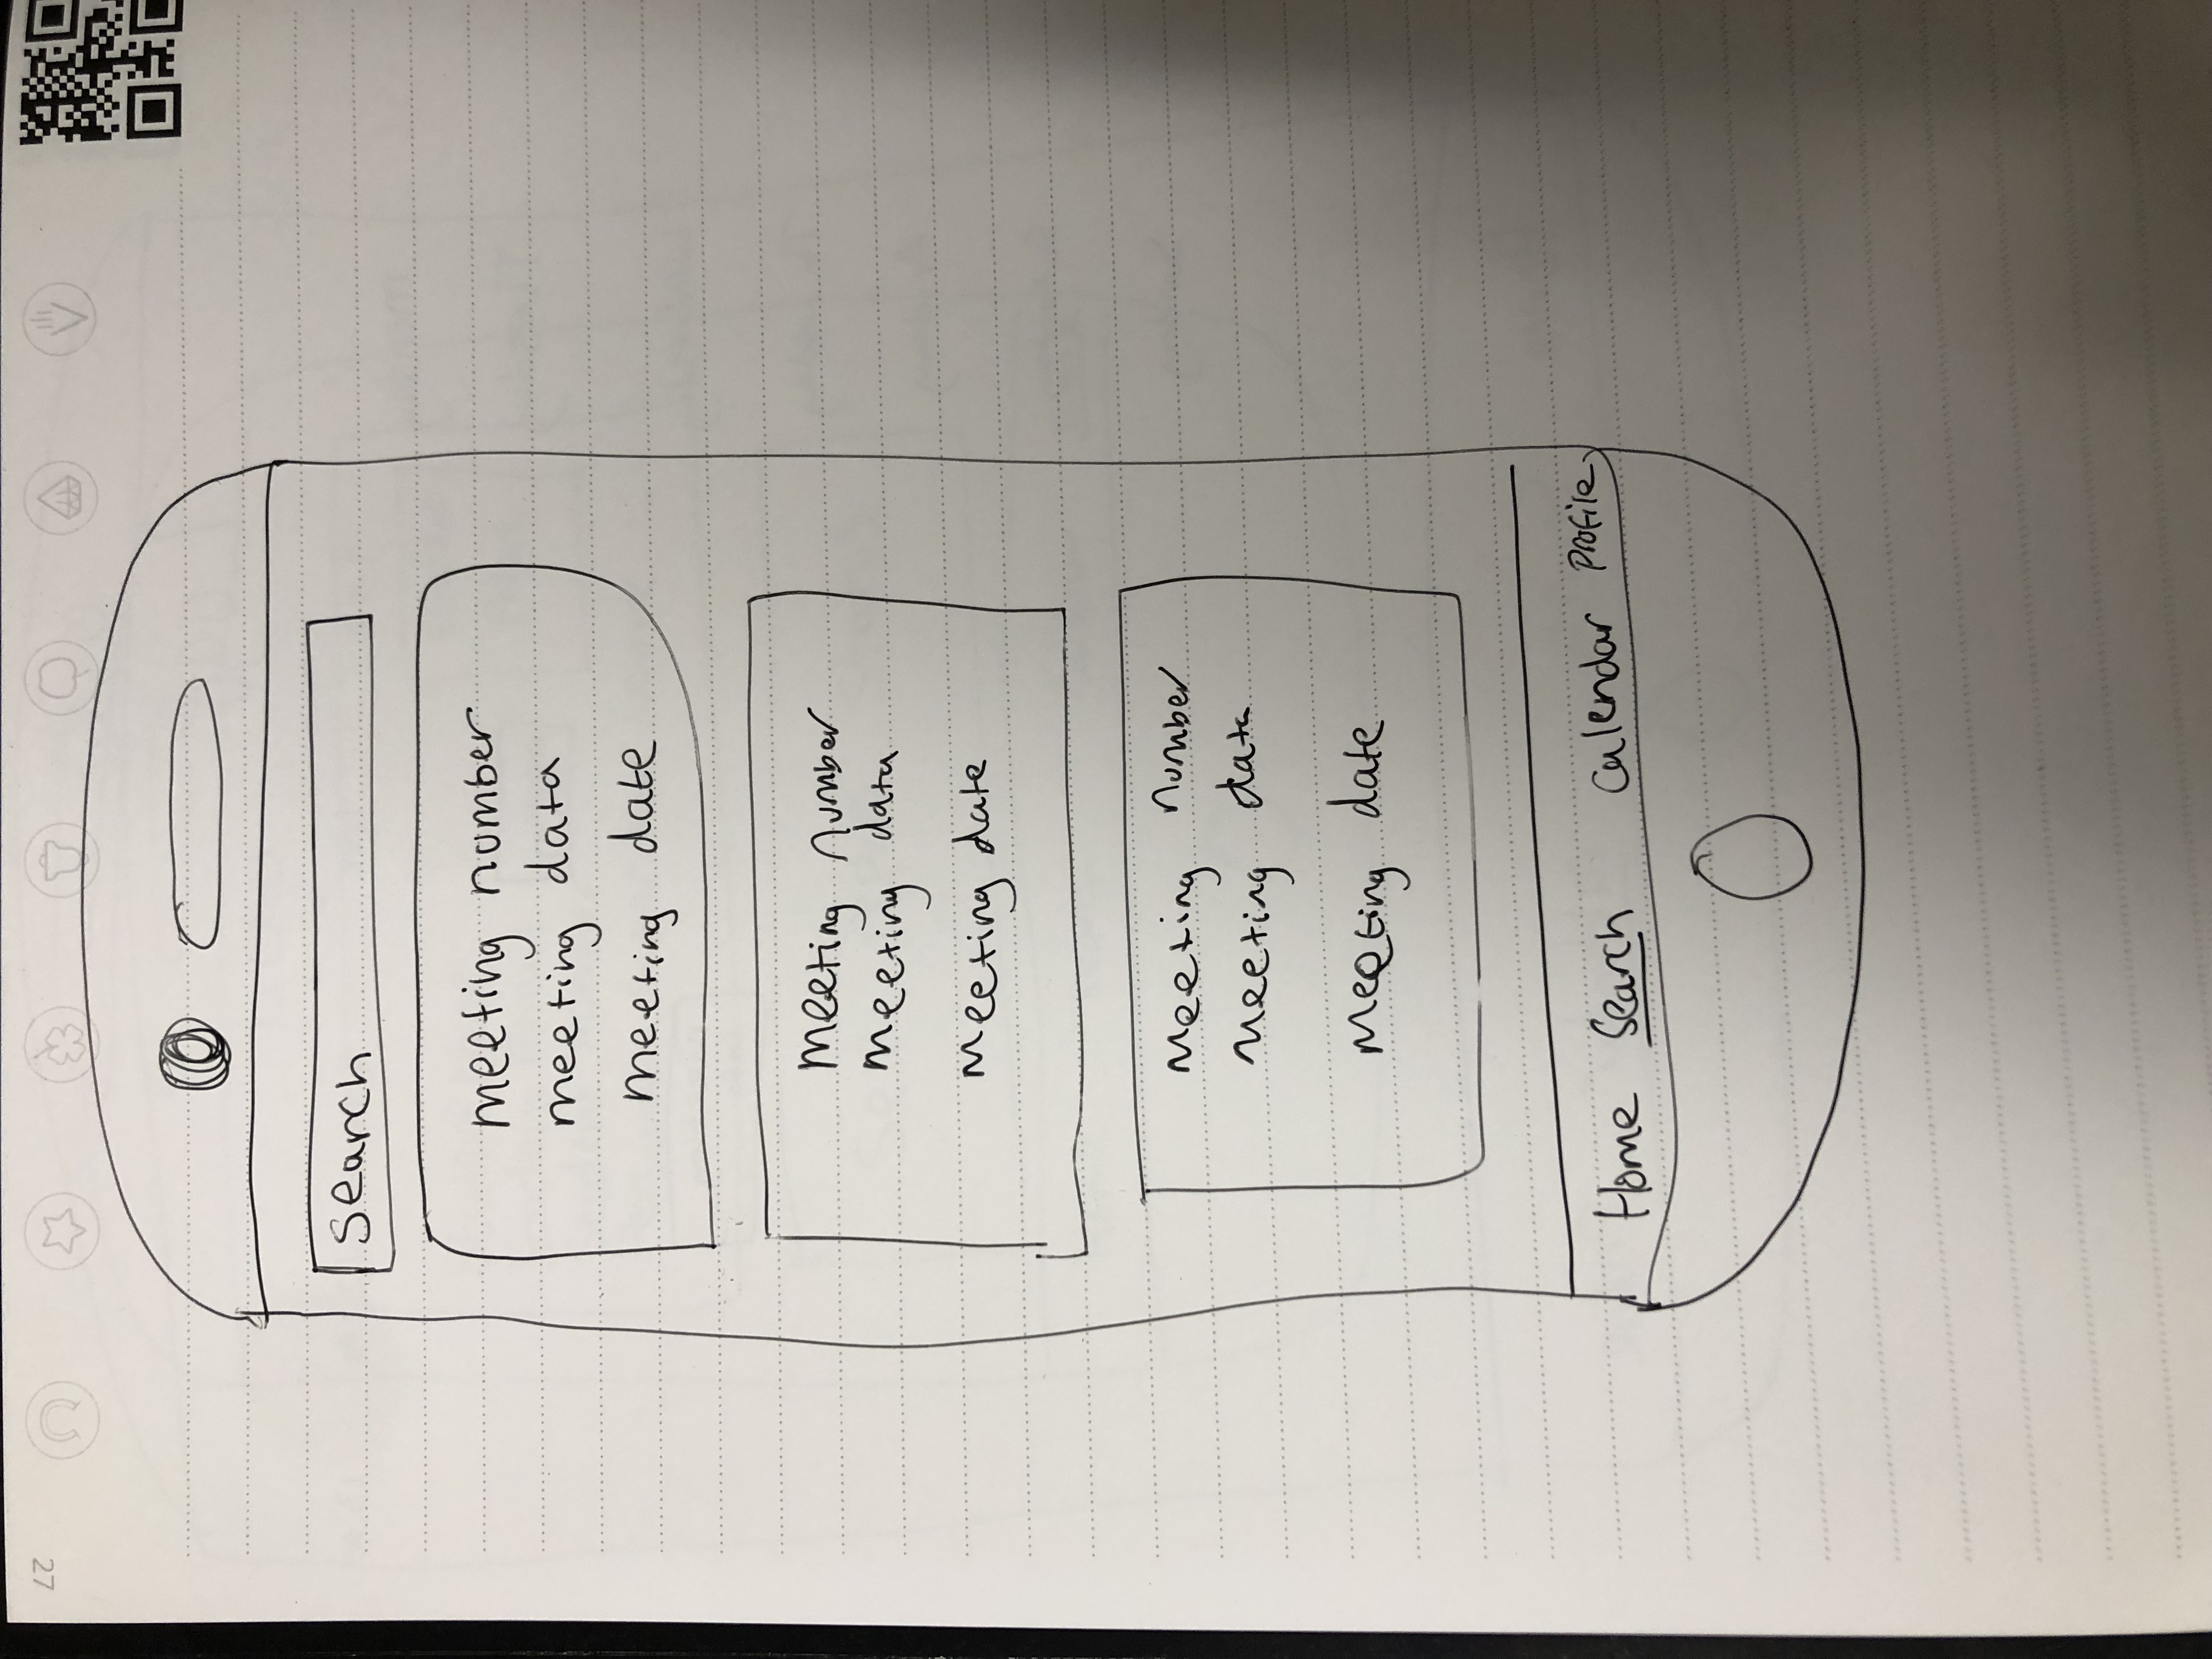 27
search
meeting number
meeting data
meeting date
meeting number
meeting data
meeting date
meeting number
meeting data
meeting date
Home Search Calendar Profile